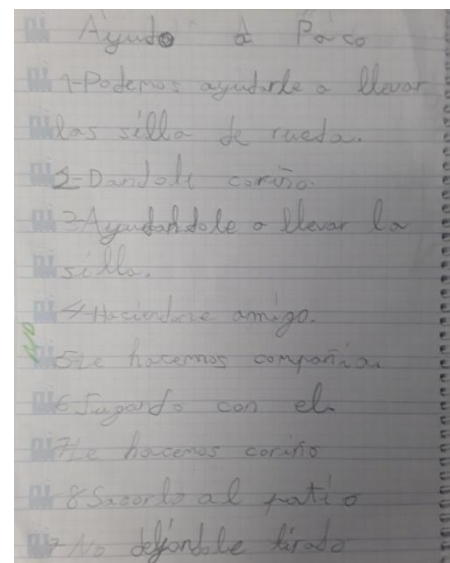 Ayudo a Paco
1-Podemos ayudarle a llevar
las silla de rueda.
2-Dandole cariño.
3-Ayudandole a llevar la
silla.
4-Haciendose amigo.
5-Le hacemos compañia.
6-Jugando con el.
7-Le hacemos cariño
8 Sacarlo al patio
No dejandole tirado